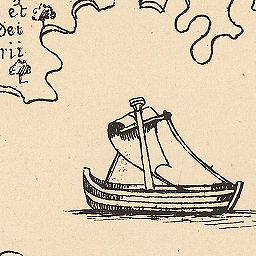 et
Dei
rii